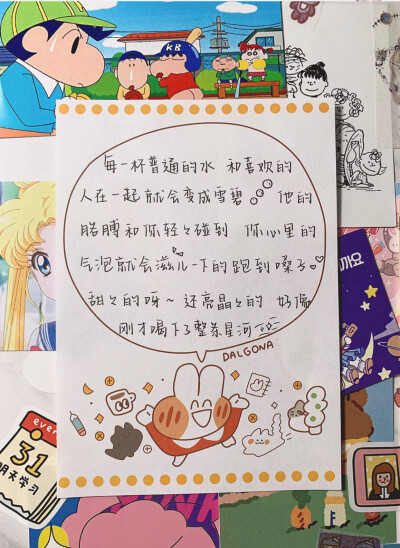 每一杯普通的水 和喜欢的
人在一起就会变成雪碧 他的
胳膊和你轻々碰到 你心里的
气泡就会滋儿一下的跑到嗓子
甜々的呀～ 还亮晶々的 好像
刚才喝下了整条星河
DALGONA
KB
31
明天学习